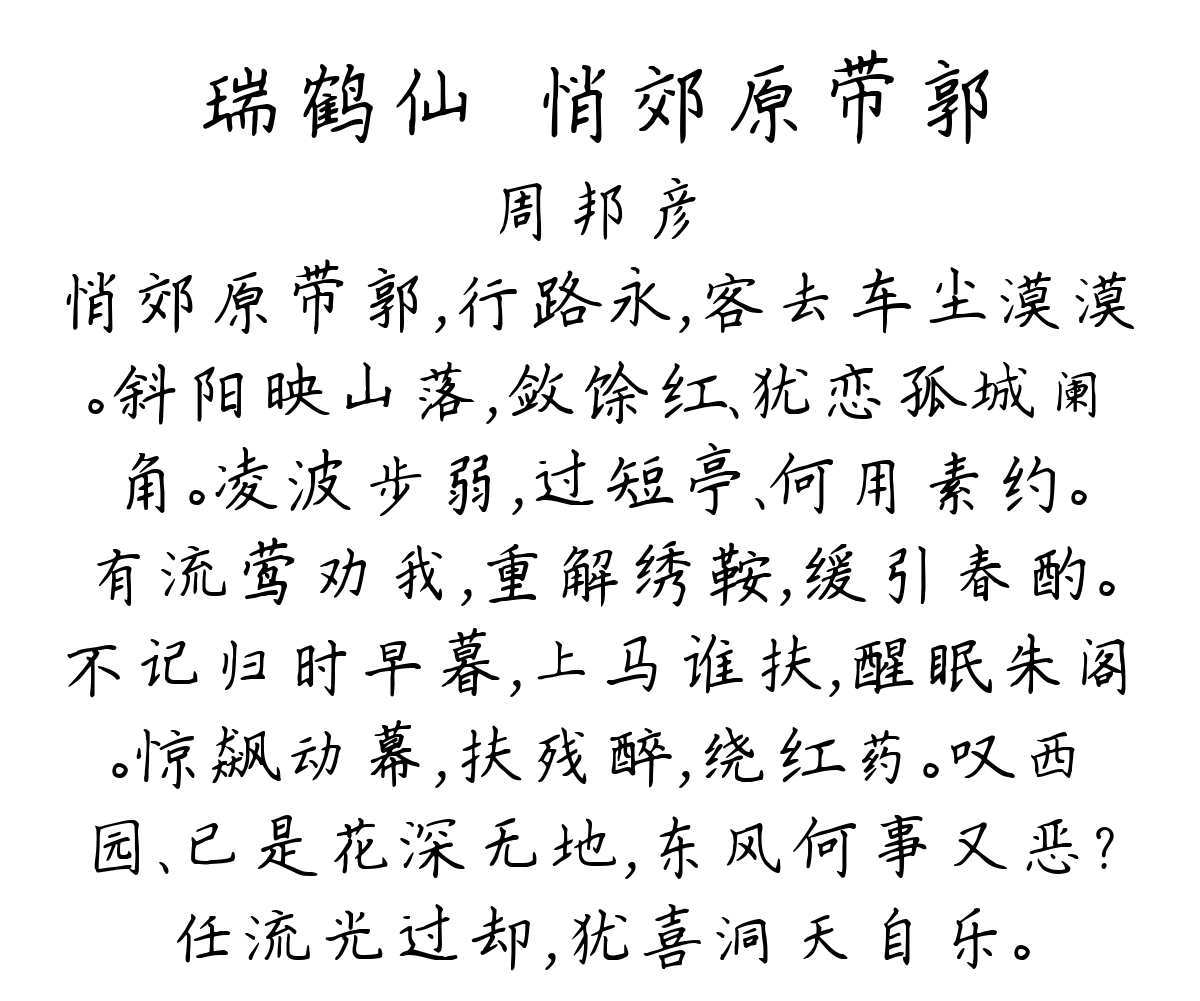 瑞鹤仙 悄郊原带郭
周邦彦
悄郊原带郭,行路永,客去车尘漠漠
。斜阳映山落,敛馀红、犹恋孤城阑
角。凌波步弱,过短亭、何用素约。
有流莺劝我,重解绣鞍,缓引春酌。
不记归时早暮,上马谁扶,醒眠朱阁
。惊飙动幕,扶残醉,绕红药。叹西
园、已是花深无地,东风何事又恶?
任流光过却,犹喜洞天自乐。